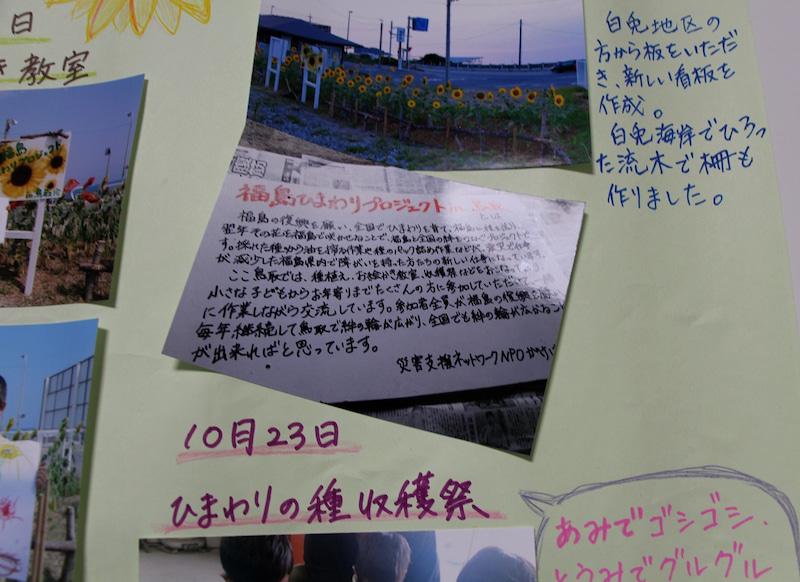 日
教室
白兎地区の
方から板をいただ
き、新しい看板を
作成。
白兎海岸でひろっ
た流木で柵も
作りました。
福島
ひまわりプロジェクト
福島ひまわりプロジェクトin鳥取
とは
福島の復興を願い、全国でひまわりを育て、福島に種を送り、
翌年その花を福島で咲かせることで、福島と全国の絆をつなぐプロジェクトで
す。採れた種から油を搾る作業や種のパック詰め作業などが、震災で仕事
が減少した福島県内で障がいを持った方たちの新しい仕事になっています。
ここ鳥取では、種植え、お絵かき教室、収穫祭などをおこない、
小さな子どもからお年寄りまでたくさんの方に参加していただいて
に作業しながら交流しています。参加者全員が福島の復興を
毎年継続して鳥取で絆の輪が広がり、全国でも絆の輪が広がること
が出来ればと思っています。
災害支援ネットワークNPO
10月23日
ひまわりの種収穫祭
あみでゴシゴシ、
とうみでグルグル